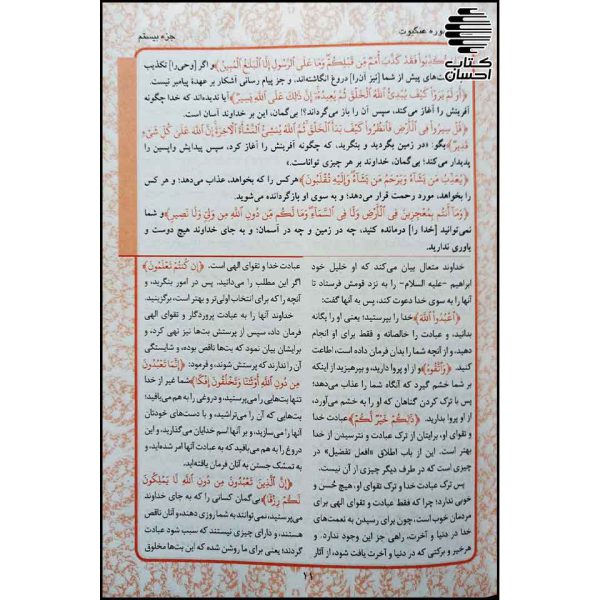 سوره عنکبوت
جزء بیستم
کتاب
احسان
تُكَذِّبُوا۟ فَقَدْ كَذَّبَ أُمَمٌ مِّن قَبْلِكُمْ ۖ وَمَا عَلَى ٱلرَّسُولِ إِلَّا ٱلْبَلَٰغُ ٱلْمُبِينُ﴾و اگر [وحی‌را] تکذیب
‌های پیش از شما [نیز آن‌را] دروغ انگاشته‌اند، و جز پیام رسانی آشکار بر عهدهٔ پیامبر نیست.
﴿أَوَلَمْ يَرَوْا۟ كَيْفَ يُبْدِئُ ٱللَّهُ ٱلْخَلْقَ ثُمَّ يُعِيدُهُۥٓ ۚ إِنَّ ذَٰلِكَ عَلَى ٱللَّهِ يَسِيرٌ﴾آیا ندیده‌اند که خدا چگونه
آفرینش را آغاز می‌کند، سپس آن را باز می‌گرداند؟! بی‌گمان، این بر خداوند آسان است.
﴿قُلْ سِيرُوا۟ فِى ٱلْأَرْضِ فَٱنظُرُوا۟ كَيْفَ بَدَأَ ٱلْخَلْقَ ۚ ثُمَّ ٱللَّهُ يُنشِئُ ٱلنَّشْأَةَ ٱلْءَاخِرَةَ ۚ إِنَّ ٱللَّهَ عَلَىٰ كُلِّ شَىْءٍ
قَدِيرٌ﴾بگو: «در زمین بگردید و بنگرید، که چگونه آفرینش را آغاز کرد، سپس پیدایش واپسین را
پدیدار می‌کند؛ بی‌گمان، خداوند بر هر چیزی تواناست.»
﴿يُعَذِّبُ مَن يَشَآءُ وَيَرْحَمُ مَن يَشَآءُ ۖ وَإِلَيْهِ تُقْلَبُونَ﴾هر کس را که بخواهد، عذاب می‌دهد؛ و هر کس
را بخواهد، مورد رحمت قرار می‌دهد؛ و به سوی او بازگردانده می‌شوید.
﴿وَمَآ أَنتُم بِمُعْجِزِينَ فِى ٱلْأَرْضِ وَلَا فِى ٱلسَّمَآءِ ۖ وَمَا لَكُم مِّن دُونِ ٱللَّهِ مِن وَلِىٍّ وَلَا نَصِيرٍ﴾و شما
نمی‌توانید [خدا را] درمانده کنید، چه در زمین و چه در آسمان؛ و به جای خداوند هیچ دوست و
یاوری ندارید.
خداوند متعال بیان می‌کند که او خلیل خود
ابراهیم -علیه السلام- را به نزد قومش فرستاد تا
آنها را به سوی خدا دعوت کند، پس به آنها گفت:
﴿ٱعْبُدُوا۟ ٱللَّهَ﴾خدا را بپرستید؛ یعنی او را یگانه
بدانید، و عبادت را خالصانه و فقط برای او انجام
دهید، و از آنچه شما را بدان فرمان داده است، اطاعت
کنید. ﴿وَٱتَّقُوهُ﴾و از او پروا دارید، و بپرهیزید از اینکه
بر شما خشم گیرد که آنگاه شما را عذاب می‌دهد؛
پس با ترک کردن گناهان که او را به خشم می‌آورد،
از او پروا بدارید. ﴿ذَٰلِكُمْ خَيْرٌ لَّكُمْ﴾عبادت خدا
و تقوای او، برایتان از ترک عبادت و نترسیدن از خدا
بهتر است. این از باب اطلاق «افعل تفضیل» در
چیزی است که در طرف دیگر چیزی از آن نیست.
پس ترک عبادت خدا و ترک تقوای او، هیچ حُسن و
خوبی ندارد؛ چرا که فقط عبادت و تقوای الهی برای
مردمان خوب است، چون برای رسیدن به نعمت‌های
خدا در دنیا و آخرت، راهی جز این وجود ندارد. و
هر خیر و برکتی که در دنیا و آخرت یافت شود، از آثار
عبادت خدا و تقوای الهی است. ﴿إِن كُنتُمْ تَعْلَمُونَ﴾
اگر این مطلب را می‌دانید. پس در امور بنگرید، و
آنچه را که برای انتخاب اولی‌تر و بهتر است، برگزینید.
خداوند آنها را به عبادت پروردگار و تقوای الهی
فرمان داد، سپس از پرستش بت‌ها نیز نهی کرد، و
برایشان بیان نمود که بت‌ها ناقص بوده، و شایستگی
آن را ندارند که پرستش شوند، و فرمود: ﴿إِنَّمَا تَعْبُدُونَ
مِن دُونِ ٱللَّهِ أَوْثَٰنًا وَتَخْلُقُونَ إِفْكًا﴾شما غیر از خدا
تنها بت‌هایی را می‌پرستید، و دروغی را به هم می‌بافید؛
بت‌هایی که آن را می‌تراشید، و با دست‌های خودتان
آنها را می‌سازید، و بر آنها اسم خدایان می‌گذارید، و
دروغ را به هم می‌بافید که به عبادت آنها امر شده‌اید، و
به تمسّک جستن به آنان فرمان یافته‌اید.
﴿إِنَّ ٱلَّذِينَ تَعْبُدُونَ مِن دُونِ ٱللَّهِ لَا يَمْلِكُونَ
لَكُمْ رِزْقًا﴾بی‌گمان کسانی را که به جای خداوند
می‌پرستید، نمی‌توانند به شما روزی دهند، و آنان ناقص
هستند، و دارای چیزی نیستند که سبب شود عبادت
گردند؛ یعنی برای ما روشن شده که این بت‌ها مخلوق
۱۱